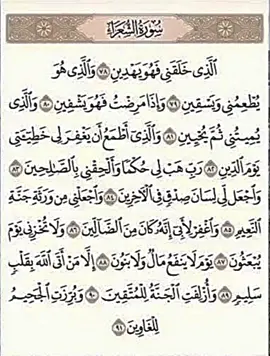 سُورَةُ الشُّعَرَاءِ
الَّذِى خَلَقَنِى فَهُوَ يَهْدِينِ ٧٨ وَالَّذِى هُوَ
يُطْعِمُنِى وَيَسْقِينِ ٧٩ وَإِذَا مَرِضْتُ فَهُوَ يَشْفِينِ ٨٠ وَالَّذِى
يُمِيتُنِى ثُمَّ يُحْيِينِ ٨١ وَالَّذِى أَطْمَعُ أَن يَغْفِرَ لِى خَطِيٓـَٔتِى
يَوْمَ الدِّينِ ٨٢ رَبِّ هَبْ لِى حُكْمًا وَأَلْحِقْنِى بِالصَّـٰلِحِينَ ٨٣
وَاجْعَل لِّى لِسَانَ صِدْقٍ فِى الْـَٔاخِرِينَ ٨٤ وَاجْعَلْنِى مِن وَرَثَةِ جَنَّةِ
النَّعِيمِ ٨٥ وَاغْفِرْ لِأَبِىٓ إِنَّهُۥ كَانَ مِنَ الضَّآلِّينَ ٨٦ وَلَا تُخْزِنِى يَوْمَ
يُبْعَثُونَ ٨٧ يَوْمَ لَا يَنفَعُ مَالٌ وَلَا بَنُونَ ٨٨ إِلَّا مَنْ أَتَى اللَّهَ بِقَلْبٍ
سَلِيمٍ ٨٩ وَأُزْلِفَتِ الْجَنَّةُ لِلْمُتَّقِينَ ٩٠ وَبُرِّزَتِ الْجَحِيمُ
لِلْغَاوِينَ ٩١